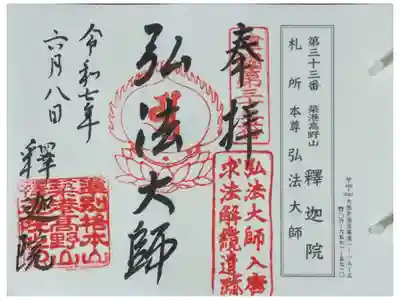 第三十三番 築港高野山 釋迦院
札所本尊 弘法大師
奉拝
弘法大師入唐
求法解纜遺跡
弘法大師
令和七年
六月八日
釋迦院
準別格本山
築港高野山